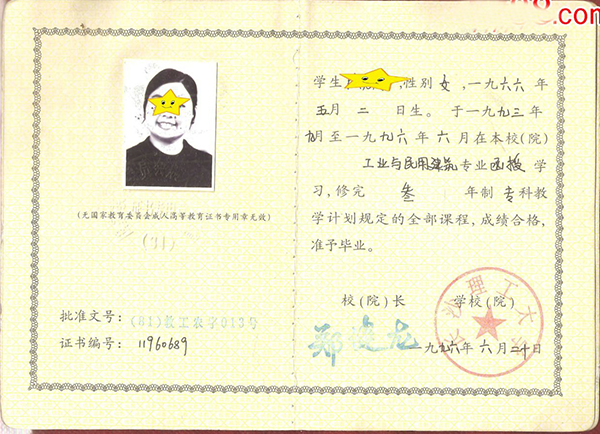 .com
(无国家教育委员会成人高等教育证书专用章无效)
(31)
批准文号:(81)教工农字013号
证书编号: 11960689
学生 ,性别女,一九六六年
五月二日生。于一九九三年
九月至一九九六年六月在本校(院)
工业与民用建筑专业函授学
习,修完 叁 年制专科教
学计划规定的全部课程,成绩合格,
准予毕业。
校(院)长 学校(院)
长沙理工大学
一九九六年六月二十日